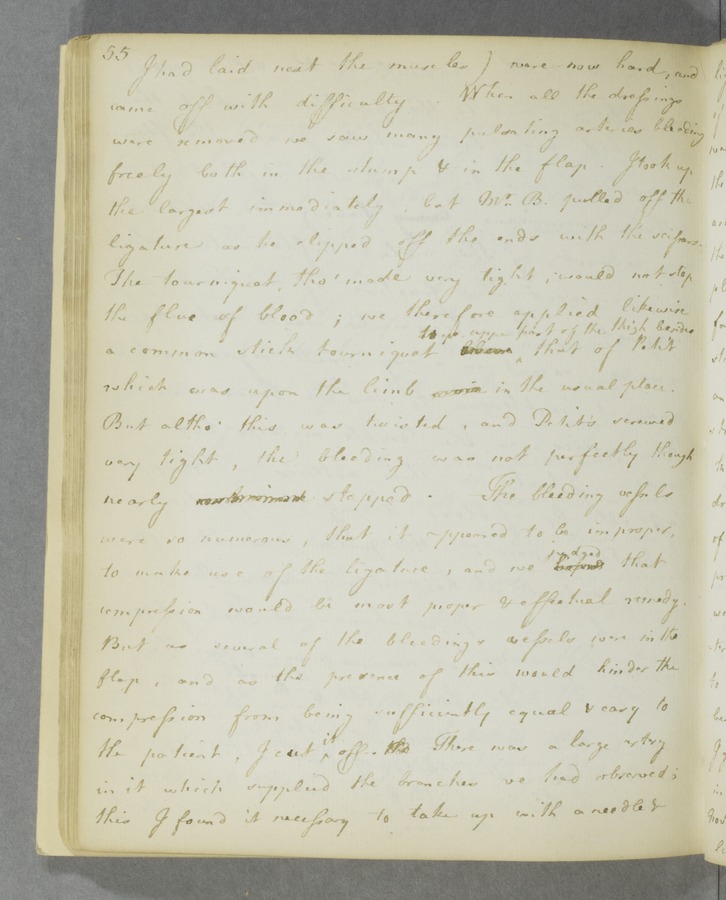 55
I had laid next the muscles) were now hard, and
came off with difficulty. When all the dressings
were removed we saw many pulsating arteries bleeding
freely both in the stump & in the flap. I took up
the largest immediately but Mr. B. pulled off the
ligature as he slipped off the ends with the scissars.
The tourniquet, tho' made very tight, would not stop
the flux of blood; we therefore applied likewise
to ye upper part of the thigh besides
a common stick tourniquet that of Petit
which was upon the limb in the usual place.
But altho' this was twisted, and Petit's screwed
very tight, the bleeding was not perfectly though
nearly stopped. The bleeding vessels
were so numerous, that it appeared to be improper,
judged
to make use of the ligature, and we that
compression would be most proper & effectual remedy.
But as several of the bleedings vessels were in the
flap, and as the presence of this would hinder the
compression from being sufficiently equal & easy to
the patient, I cut it off. There was a large artery
in it which supplied the branches we had observed;
this I found it necessary to take up with a needle &